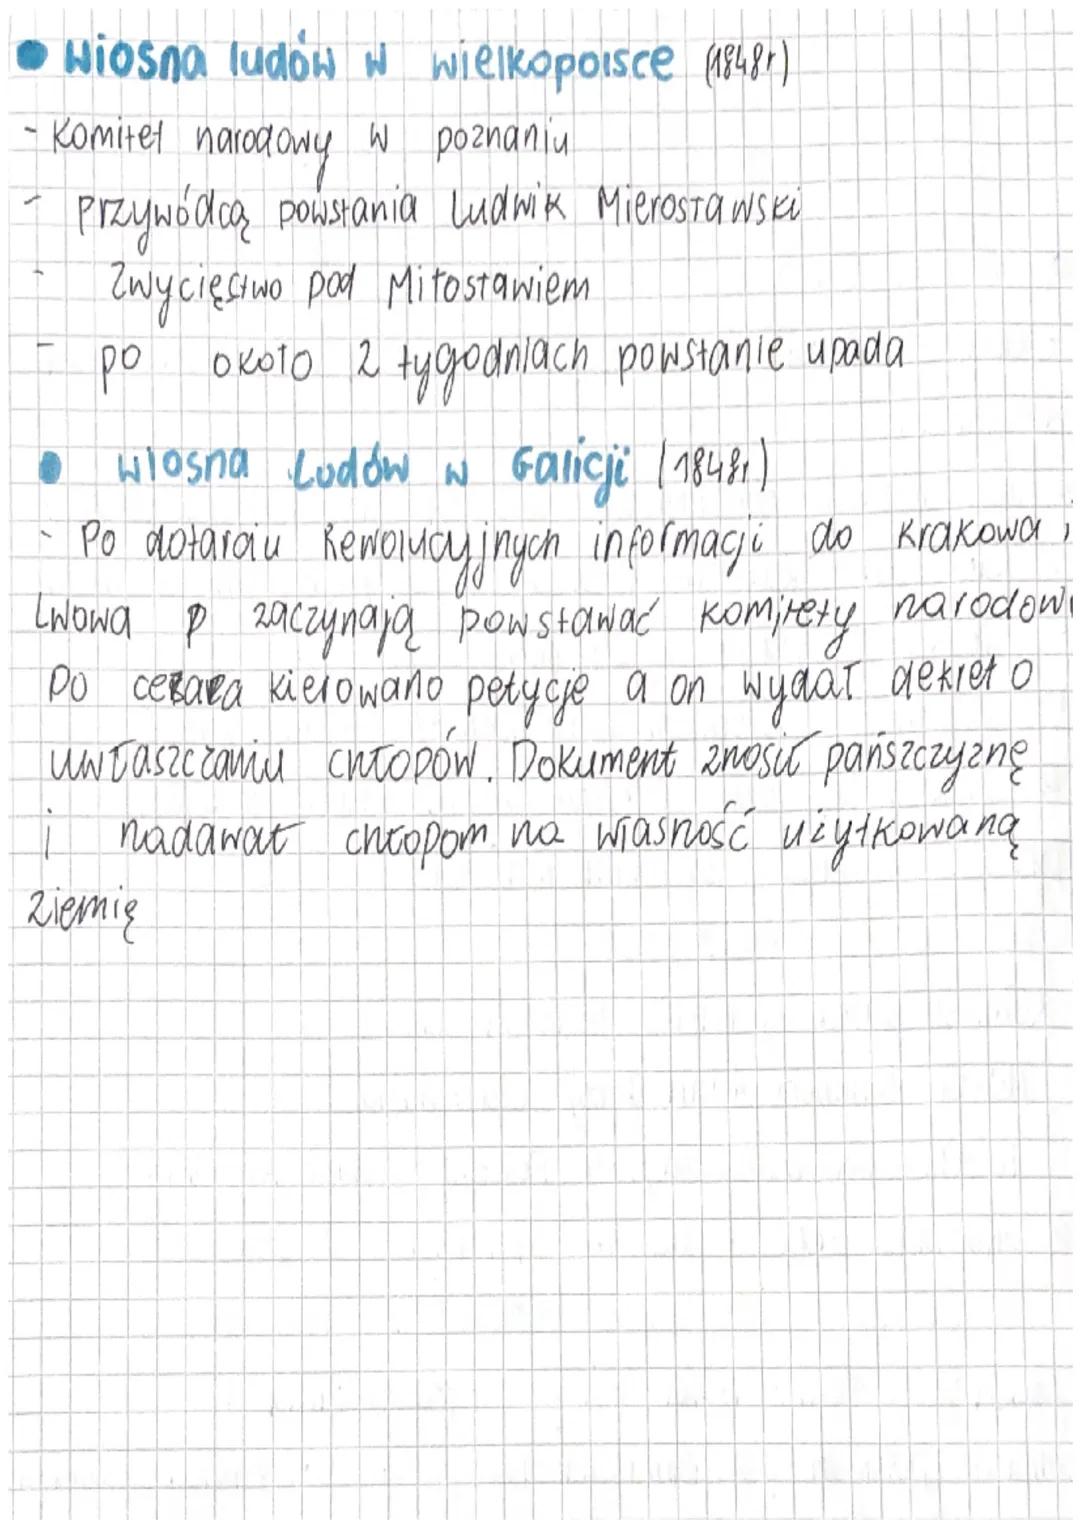 • Wiosna ludów w wielkopolsce (1848r)
- Komitet narodowy w poznaniu
- przywódcą powstania Ludwik Mierosławski
- Zwycięstwo pod Miłosławiem
- po około 2 tygodniach powstanie upada
• Wiosna Ludów w Galicji (1848r)
- Po dotarciu Rewolucyjnych informacji do Krakowa i
Lwowa p zaczynają powstawać komitety narodow
Do cesarza kierowano petycje a on wydał dekret o
uwłaszczaniu chłopów. Dokument znosił pańszczyznę
i nadawał chłopom na własność użytkowaną
ziemię